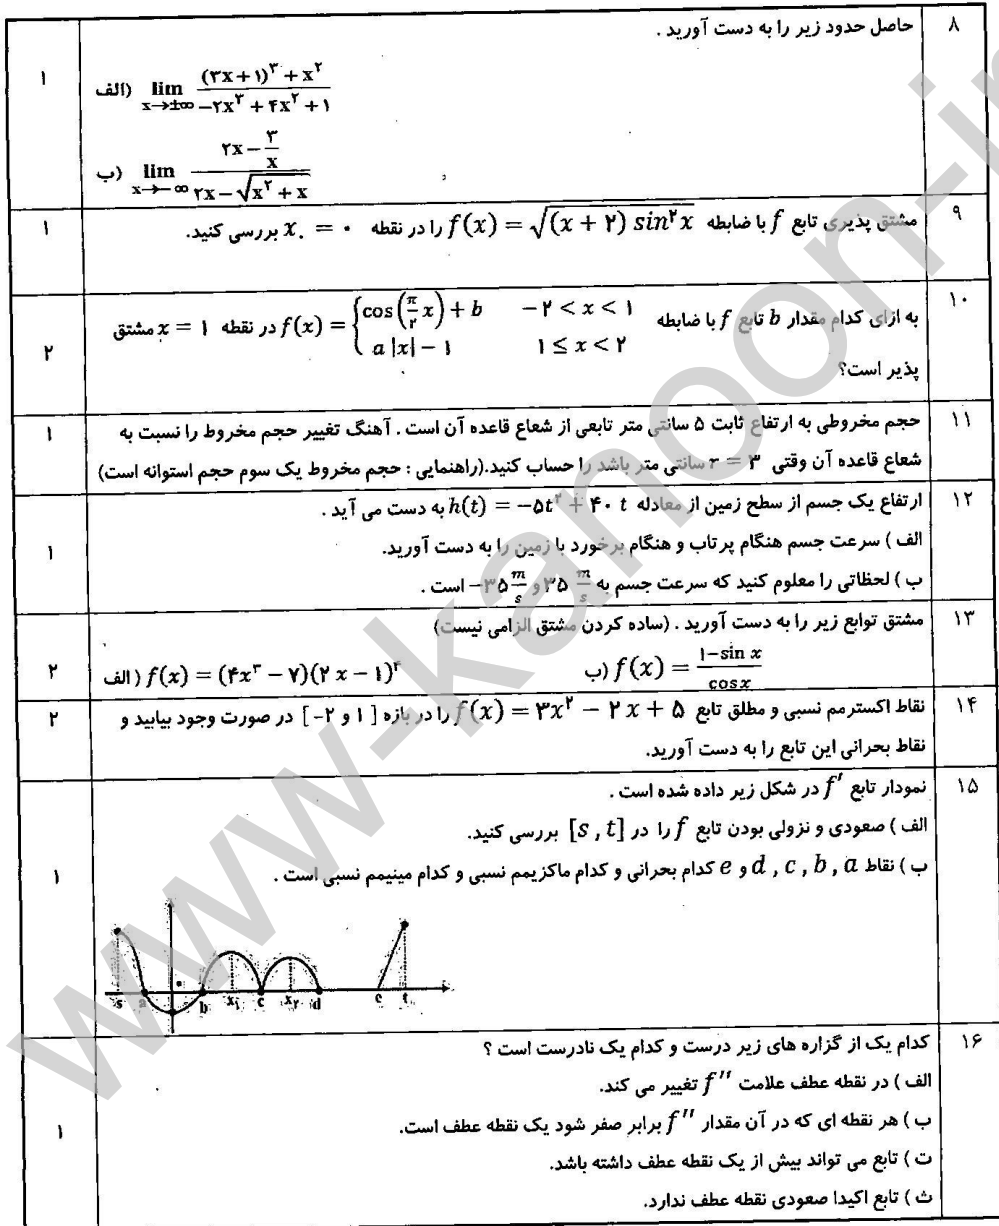 ۸
حاصل حدود زیر را به دست آورید .
۱
الف) lim x→±∞ ((۳x+۱)^۳ + x^۲) / (−۲x^۳ + ۴x^۲ + ۱)
ب) lim x→−∞ (۲x − ۳/x) / (۲x − √(x^۲ + x))
۹
مشتق پذیری تابع f با ضابطه f(x) = √((x + ۲) sin^۲ x) را در نقطه x. = ۰ بررسی کنید.
۱
۱۰
به ازای کدام مقدار b تابع f با ضابطه f(x) = { cos(π/۲ x) + b   −۲ < x < ۱ در نقطه x = ۱ مشتق
a |x| − ۱   ۱ ≤ x < ۲
پذیر است؟
۲
۱۱
حجم مخروطی به ارتفاع ثابت ۵ سانتی متر تابعی از شعاع قاعده آن است . آهنگ تغییر حجم مخروط را نسبت به
شعاع قاعده آن وقتی r = ۳ سانتی متر باشد را حساب کنید.(راهنمایی : حجم مخروط یک سوم حجم استوانه است)
۱
۱۲
ارتفاع یک جسم از سطح زمین از معادله h(t) = −۵t^۲ + ۴۰ t به دست می آید .
الف ) سرعت جسم هنگام پرتاب و هنگام برخورد با زمین را به دست آورید.
ب ) لحظاتی را معلوم کنید که سرعت جسم به ۳۵ m/s و −۳۵ m/s است .
۱
۱۳
مشتق توابع زیر را به دست آورید . (ساده کردن مشتق الزامی نیست)
الف ) f(x) = (۴x^۳ − ۷)(۲ x − ۱)^۴   ب) f(x) = (۱−sin x)/cosx
۲
۱۴
نقاط اکسترمم نسبی و مطلق تابع f(x) = ۳x^۲ − ۲ x + ۵ را در بازه [ ۱ و ۲-] در صورت وجود بیابید و
نقاط بحرانی این تابع را به دست آورید.
۲
۱۵
نمودار تابع f′ در شکل زیر داده شده است .
الف ) صعودی و نزولی بودن تابع f را در [s , t] بررسی کنید.
ب ) نقاط d , c , b , a و e کدام بحرانی و کدام ماکزیمم نسبی و کدام مینیمم نسبی است .
۱
s a b x۱ c x۲ d e t
۱۶
کدام یک از گزاره های زیر درست و کدام یک نادرست است ؟
الف ) در نقطه عطف علامت f″ تغییر می کند.
ب ) هر نقطه ای که در آن مقدار f″ برابر صفر شود یک نقطه عطف است.
ت ) تابع می تواند بیش از یک نقطه عطف داشته باشد.
ث ) تابع اکیدا صعودی نقطه عطف ندارد.
۱